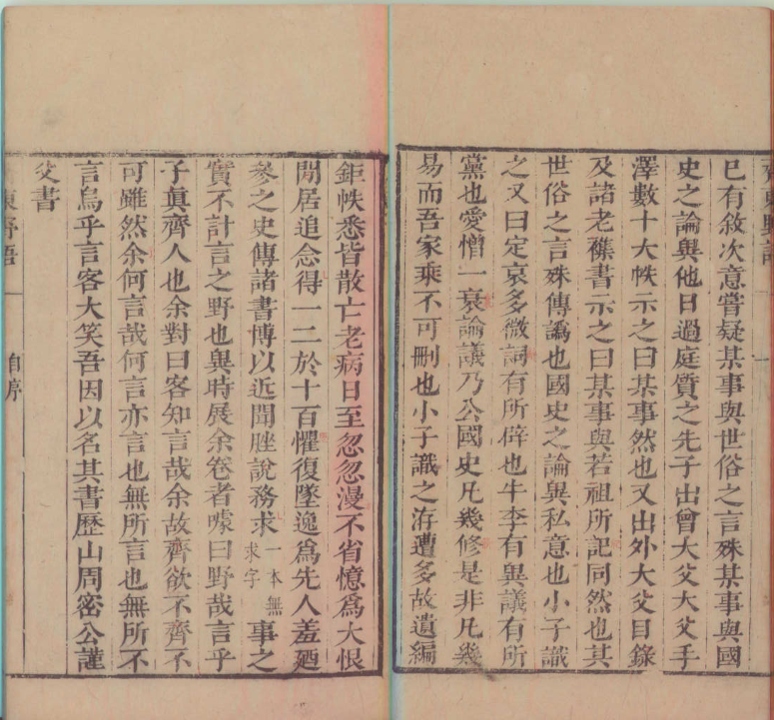 齊東野語
一
已有敘次意嘗疑某事與世俗之言殊某事與國
史之論異他日過庭質之先子出曾大父大父手
澤數十大帙示之曰某事然也又出外大父日錄
及諸老襍書示之曰某事與若祖所記同然也其
世俗之言殊傳譌也國史之論異私意也小子識
之又曰定哀多微詞有所辟也牛李有異議有所
黨也愛憎一衰論議乃公國史凡幾修是非凡幾
易而吾家乘不可刪也小子識之洊遭多故遺編
鉅帙悉皆散亡老病日至忽忽漫不省憶爲大恨
閒居追念得一二於十百懼復墜逸爲先人羞廼
參之史傳諸書博以近聞脞說務求一本無求字事之
實不計言之野也異時展余卷者噱曰野哉言乎
子眞齊人也余對曰客知言哉余故齊欲不齊不
可雖然余何言哉何言亦言也無所言也無所不
言烏乎言客大笑吾因以名其書歷山周密公謹
父書
東野語
自序